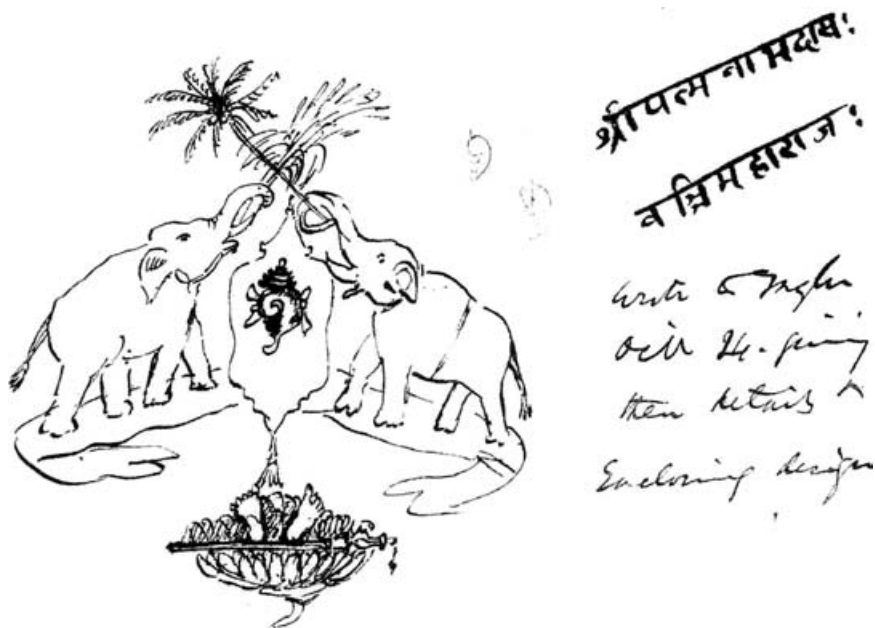 श्रीपत्मनाभदास:
वन्निमहाराज:
wrote to Inglis
Octr 24. giving
them details &
Enclosing design